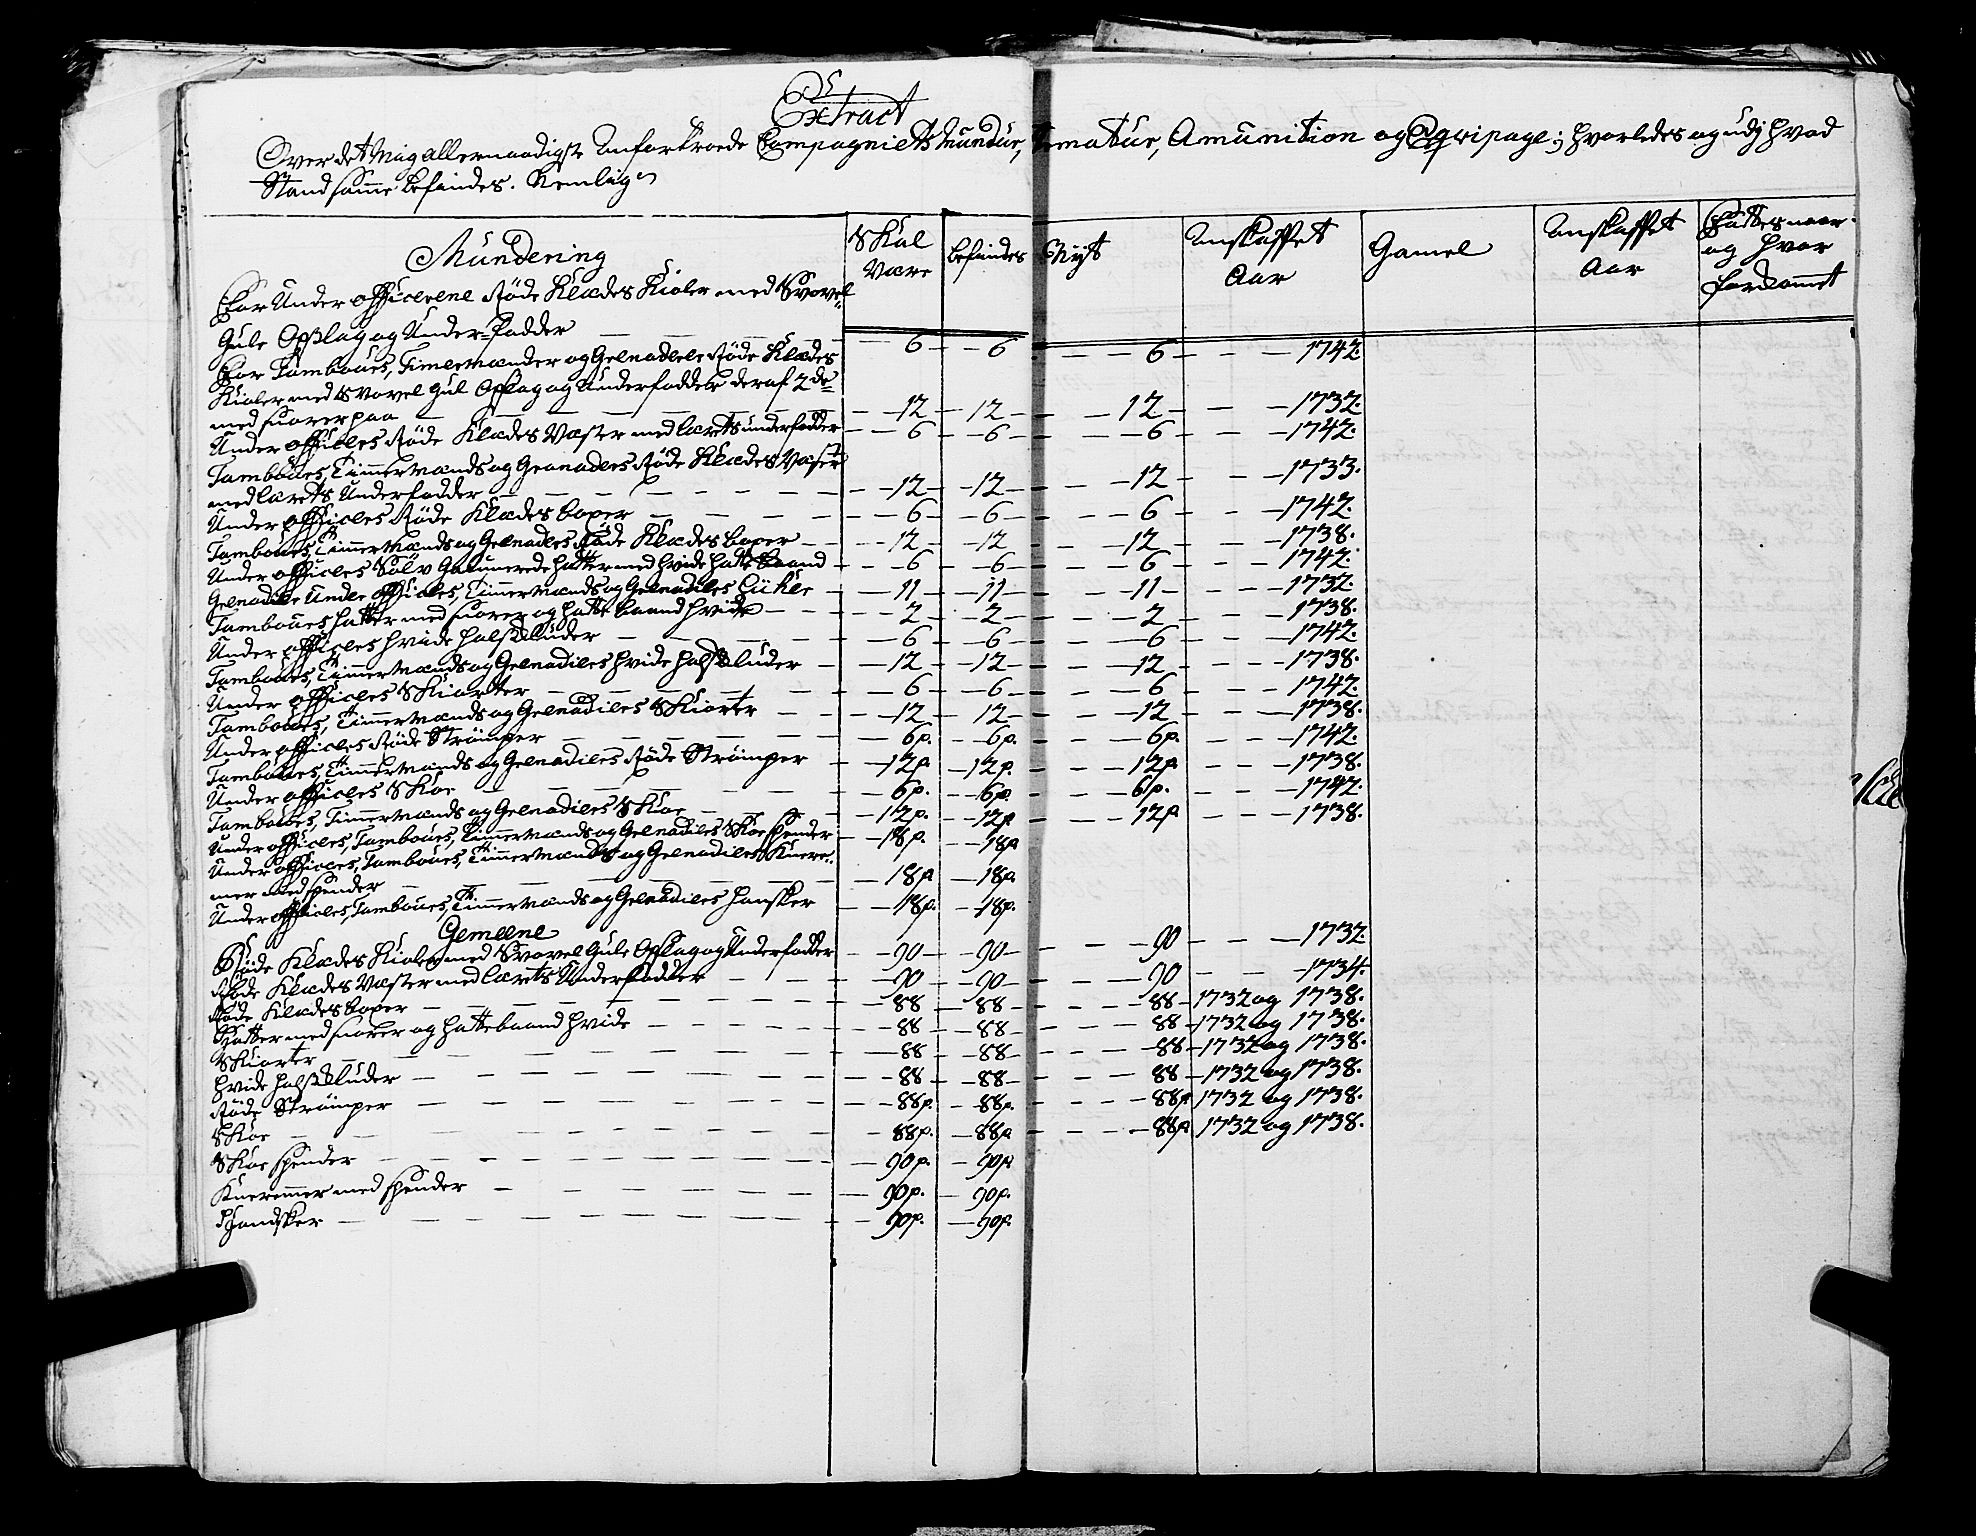 Extract
Over det Mig allernaadigst Anfortroede Compagniets Mundur, Armatur, Amunition og Eqvipage; hvorledes og udj hvad
Stand samme befindes. Nemlig
Mundering
Skal Være
befindes
Nyt
Anskaffet Aar
Gamel
Anskaffet Aar
Fattes naar og hvor forkommet
For Under officerene Røde Klædes Kioler med Svovel
Gule Opslag og Under-Fodder — 6 — 6 — 6 — 1742.
For Tambours, Timermænder og Grenaderer Røde Klædes
Kioler med Svovel gul Opslag og Underfodder deraf 2de
med snorer paa — 12 — 12 — 12 — 1732.
Under officiers Røde Klædes Væster med lærets underfodder — 6 — 6 — 6 — 1742.
Tambours, Timmermænds og Granaders Røde Klædes Væster
med lærets Underfodder — 12 — 12 — 12 — 1733.
Under officiers Røde Klædes boxer — 6 — 6 — 6 — 1742.
Tambours, Timmermænds og Grenaders Røde Klædes boxer — 12 — 12 — 12 — 1738.
Under officiers Sølv Galunerede hatter med hvide hatte baand — 6 — 6 — 6 — 1742.
Grenadier Under Officiers, Timmermænds og Grenadiers — 11 — 11 — 11 — 1732.
Tambours hatter med snorer og hatte baand hvide — 2 — 2 — 2 — 1738.
Under officiers hvide halsKluder — 6 — 6 — 6 — 1742.
Tambours, Timmermænds og Grenadiers hvide halsKluder — 12 — 12 — 12 — 1738.
Under officiers Skiorter — 6 — 6 — 6 — 1742.
Tambours, Timmermænds og Grenadiers Skiorter — 12 — 12 — 12 — 1738.
Under officiers Røde Strømper — 6p. — 6p. — 6p. — 1742.
Tambours, Timmermænds og Grenadiers Røde Strømper — 12p — 12p. — 12p — 1738.
Under officiers Skoe — 6p. — 6p. — 6p. — 1742.
Tambours, Timmermænds og Grenadiers Skoe — 12p. — 12p — 12p — 1738.
Under officiers, Tambours, Timmermænds og Grenadiers Skoe spender — 18p. — 18p
Under officiers, Tambours, Timmermænds og Grenadiers Knere-
mer med spender — 18p — 18p
Under officiers, Tambours, Timmermænds og Grenadiers Hansker — 18p. — 18p.
Gemeene
Røde Klædes Kioler med Svovel Gule Opslag og Underfodder — 90 — 90 — 90 — 1732.
Røde Klædes Væster med lærets Underfodder — 90 — 90 — 90 — 1734.
Røde Klædes boxer — 88 — 88 — 88 — 1732 og 1738.
Hatter med snorer og hattebaand hvide — 88 — 88 — 88 — 1732 og 1738.
Skiorter — 88 — 88 — 88 — 1732 og 1738.
Hvide halsKluder — 88 — 88 — 88 — 1732 og 1738.
Røde Strømper — 88p. — 88p. — 88p 1732 og 1738.
Skoe — 88p. — 88p — 88p 1732 og 1738.
Skoe spender — 90p. — 90p
Kneremmer med spender — 90p. — 90p.
Handsker — 90p. — 90p.